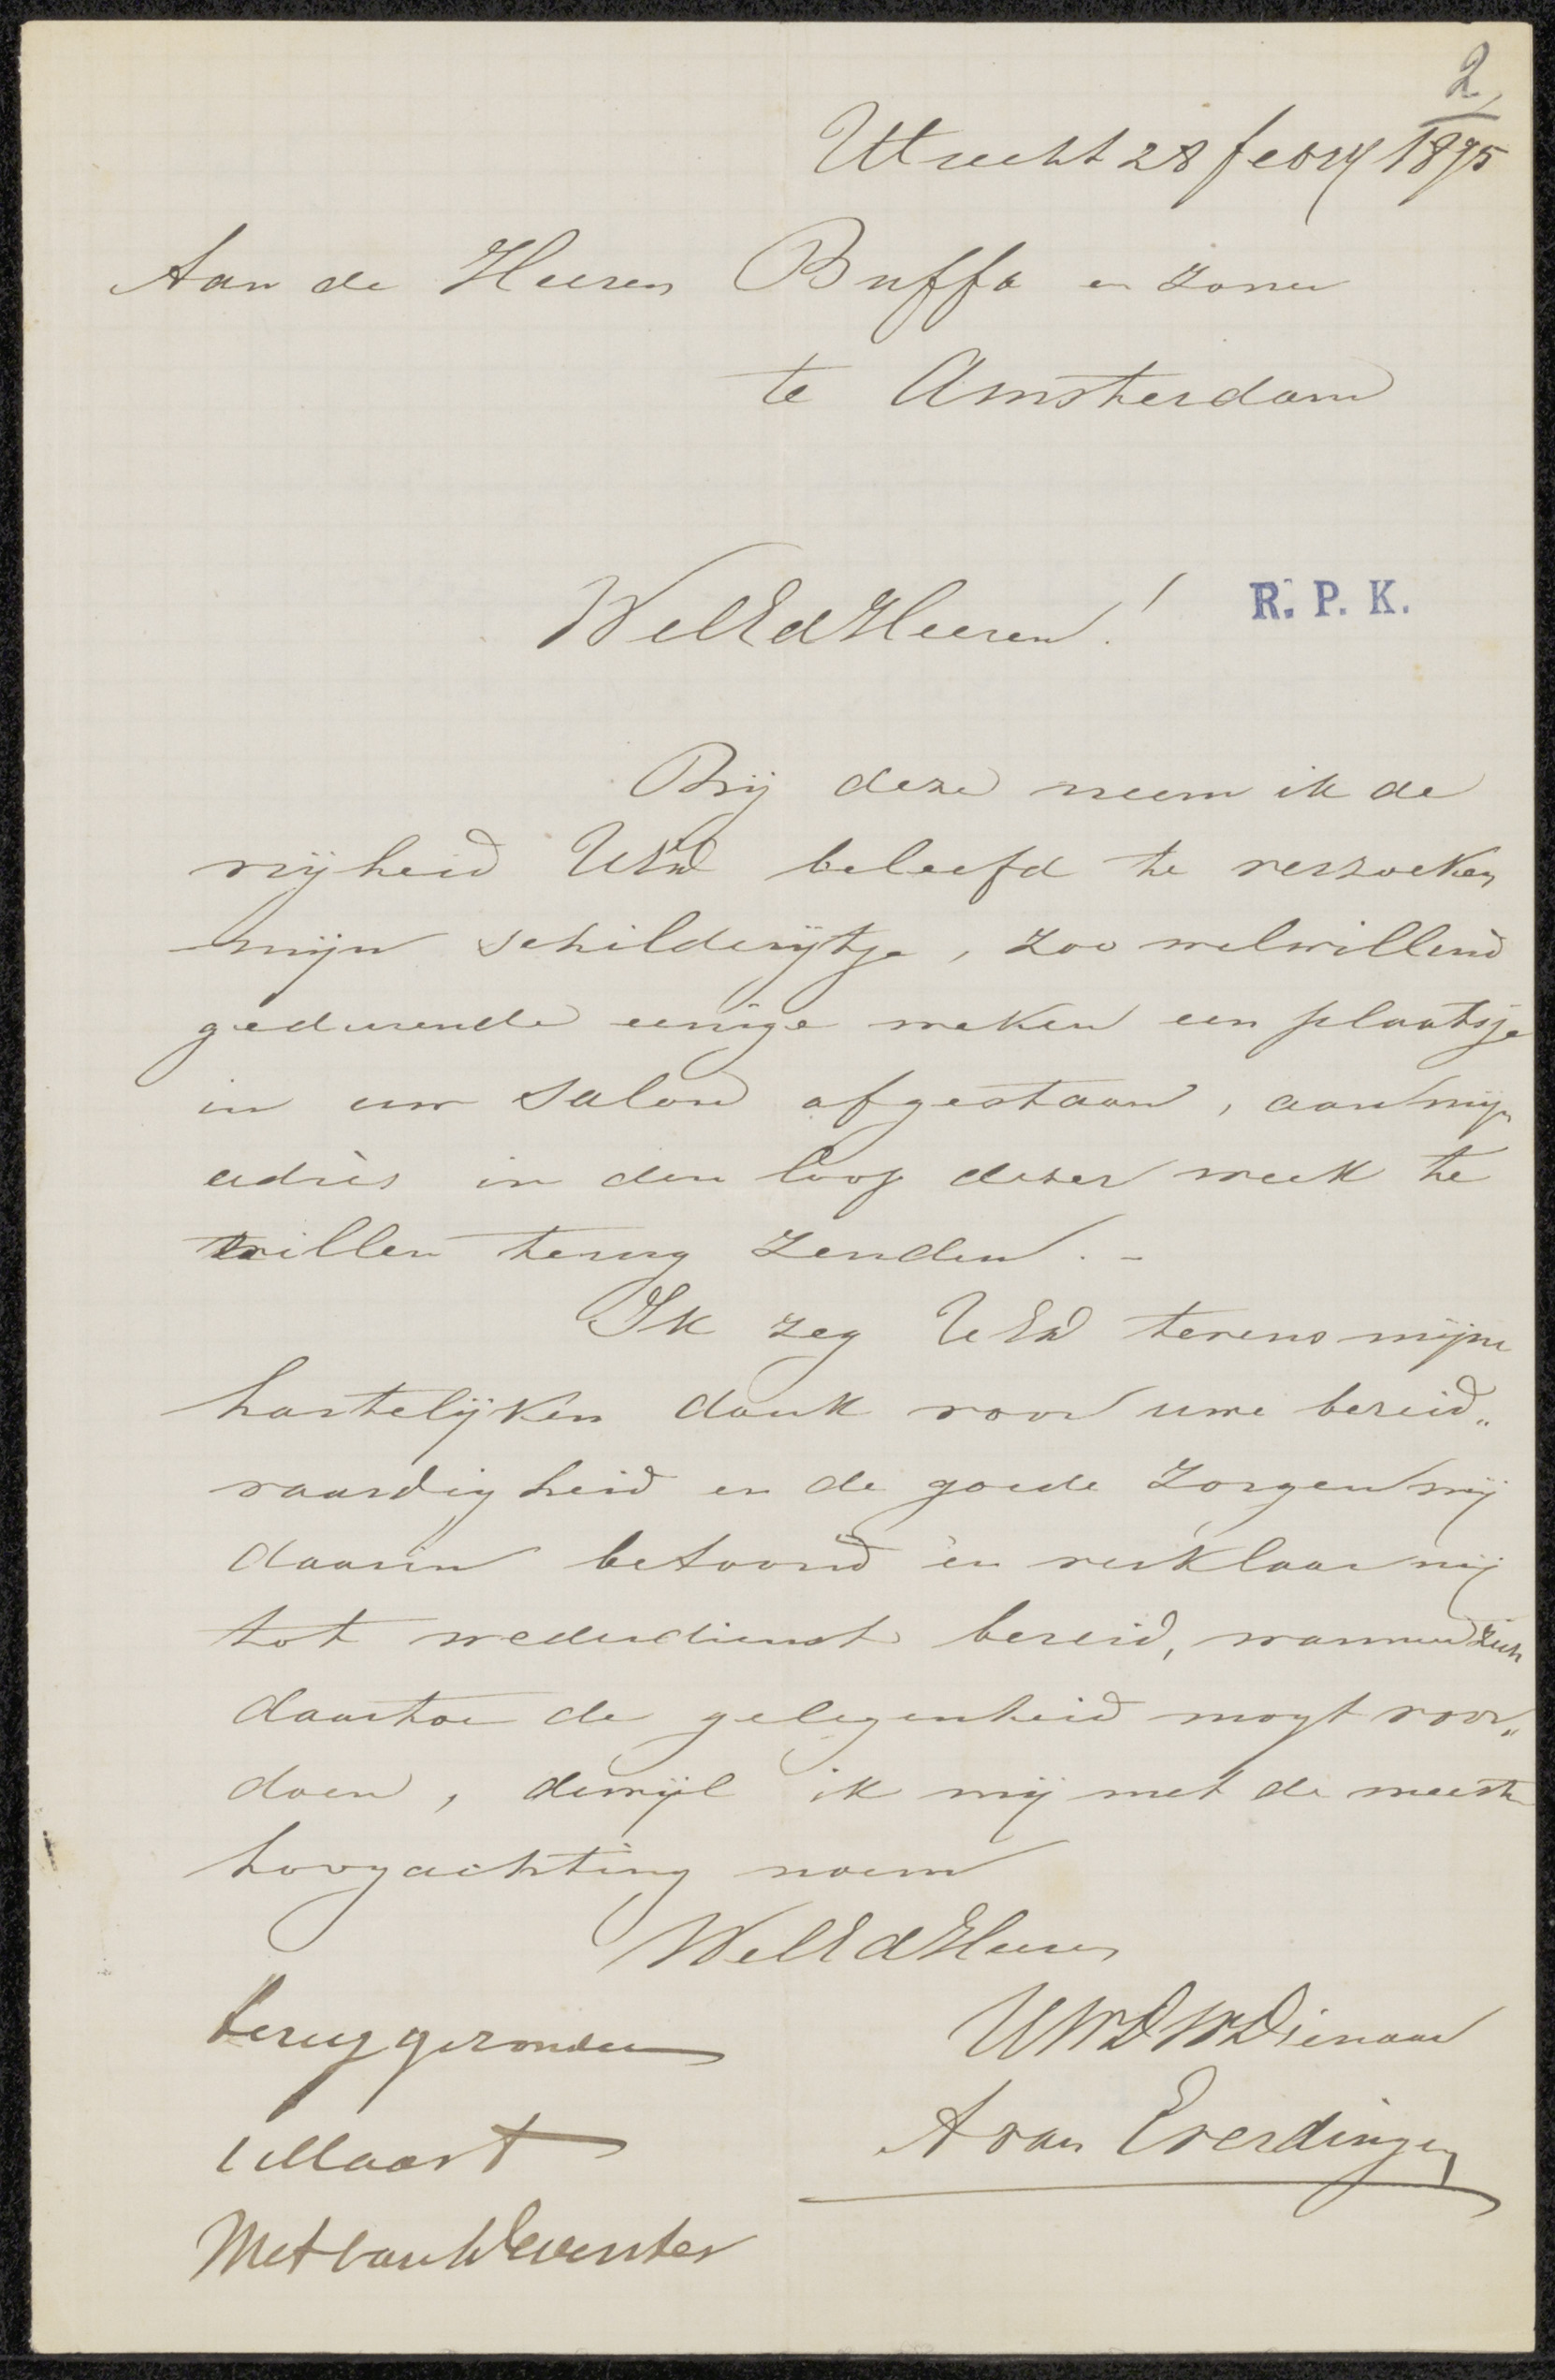 2
Utrecht 28 febry 1895
Aan de Heeren Buffa en zonen
te Amsterdam
WelEdHeeren!
R. P. K.
Bij deze neem ik de
vrijheid UEd beleefd te verzoeken
mijn schilderijtje, zoo welwillend
gedurende eenige weken een plaatsje
in uw Salon afgestaan, aan mijn
adrès in den loop dezer week te
willen terug zenden. -
Ik zeg UEd tevens mijne
hartelijken dank voor uwe bereid„
vaardigheid en de goede zorgen mij
daarin betoond en verklaar mij
tot wederdienst bereid, wanneer zich
daartoe de gelegenheid mogt voor„
doen, dewijl ik mij met de meeste
hoogachting noem
WelEdHeeren
UWDWDienaar
A van Everdingen
terug gezonden
1 Maart
Met van